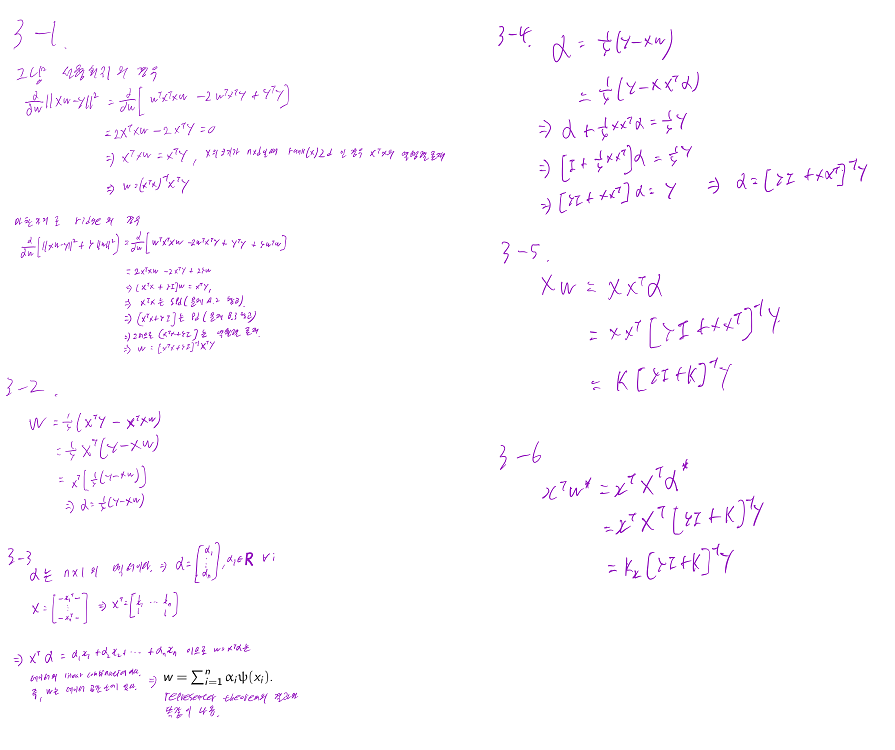 3-1.
그냥 선형회귀의 경우
∂/∂w ||Xw-y||² = ∂/∂w [wᵀXᵀXw - 2wᵀXᵀy + yᵀy]
= 2XᵀXw - 2Xᵀy = 0
⇒ XᵀXw = Xᵀy, X의 크기가 n×d rank(x) 인 경우 XᵀX의
⇒ w = (XᵀX)⁻¹Xᵀy
마찬가지로 ridge의 경우
∂/∂w [||Xw-y||² + λ||w||²] = ∂/∂w [wᵀXᵀXw - 2wᵀXᵀy + yᵀy + λwᵀw]
= 2XᵀXw - 2Xᵀy + 2λw
⇒ (XᵀX + λI)w = Xᵀy,
⇒ XᵀX는 spd (문제 2 참고)
⇒ (XᵀX+λI)는 Pd (문제 참고)
⇒ (XᵀX+λI)는 역행렬 존재
⇒ w = [XᵀX+λI]⁻¹Xᵀy
3-2.
w = 1/λ (Xᵀy - XᵀXw)
= 1/λ Xᵀ(y-Xw)
= Xᵀ[1/λ(y-Xw)]
⇒ α = 1/λ(y-Xw)
3-3
α는 n×1의 ⇒ α = [α₁ ⋮ αₙ], αᵢ∈R ∀i
X = [-x₁ᵀ- ⋮ -xₙᵀ-] ⇒ Xᵀ = [x₁ ⋯ xₙ]
⇒ Xᵀα = α₁x₁ + α₂x₂ + ⋯ + αₙxₙ 이므로 w=Xᵀα는
데이터의 linear combination
즉, w는 데이터 공간 있다. ⇒ w = ∑ⁿᵢ₌₁ αᵢψ(xᵢ).
representer theorem의 결과와
똑같이 나옴.
3-4.
α = 1/λ(y-Xw)
= 1/λ(y-XXᵀα)
⇒ α + 1/λ XXᵀα = 1/λ y
⇒ [I + 1/λ XXᵀ]α = 1/λ y
⇒ [λI + XXᵀ]α = y ⇒ α = [λI + XXᵀ]⁻¹y
3-5.
Xw = XXᵀα
= XXᵀ[λI+XXᵀ]⁻¹y
= K[λI+K]⁻¹y
3-6
xᵀw* = xᵀXᵀα*
= xᵀXᵀ[λI+K]⁻¹y
= Kₓ[λI+K]⁻¹y